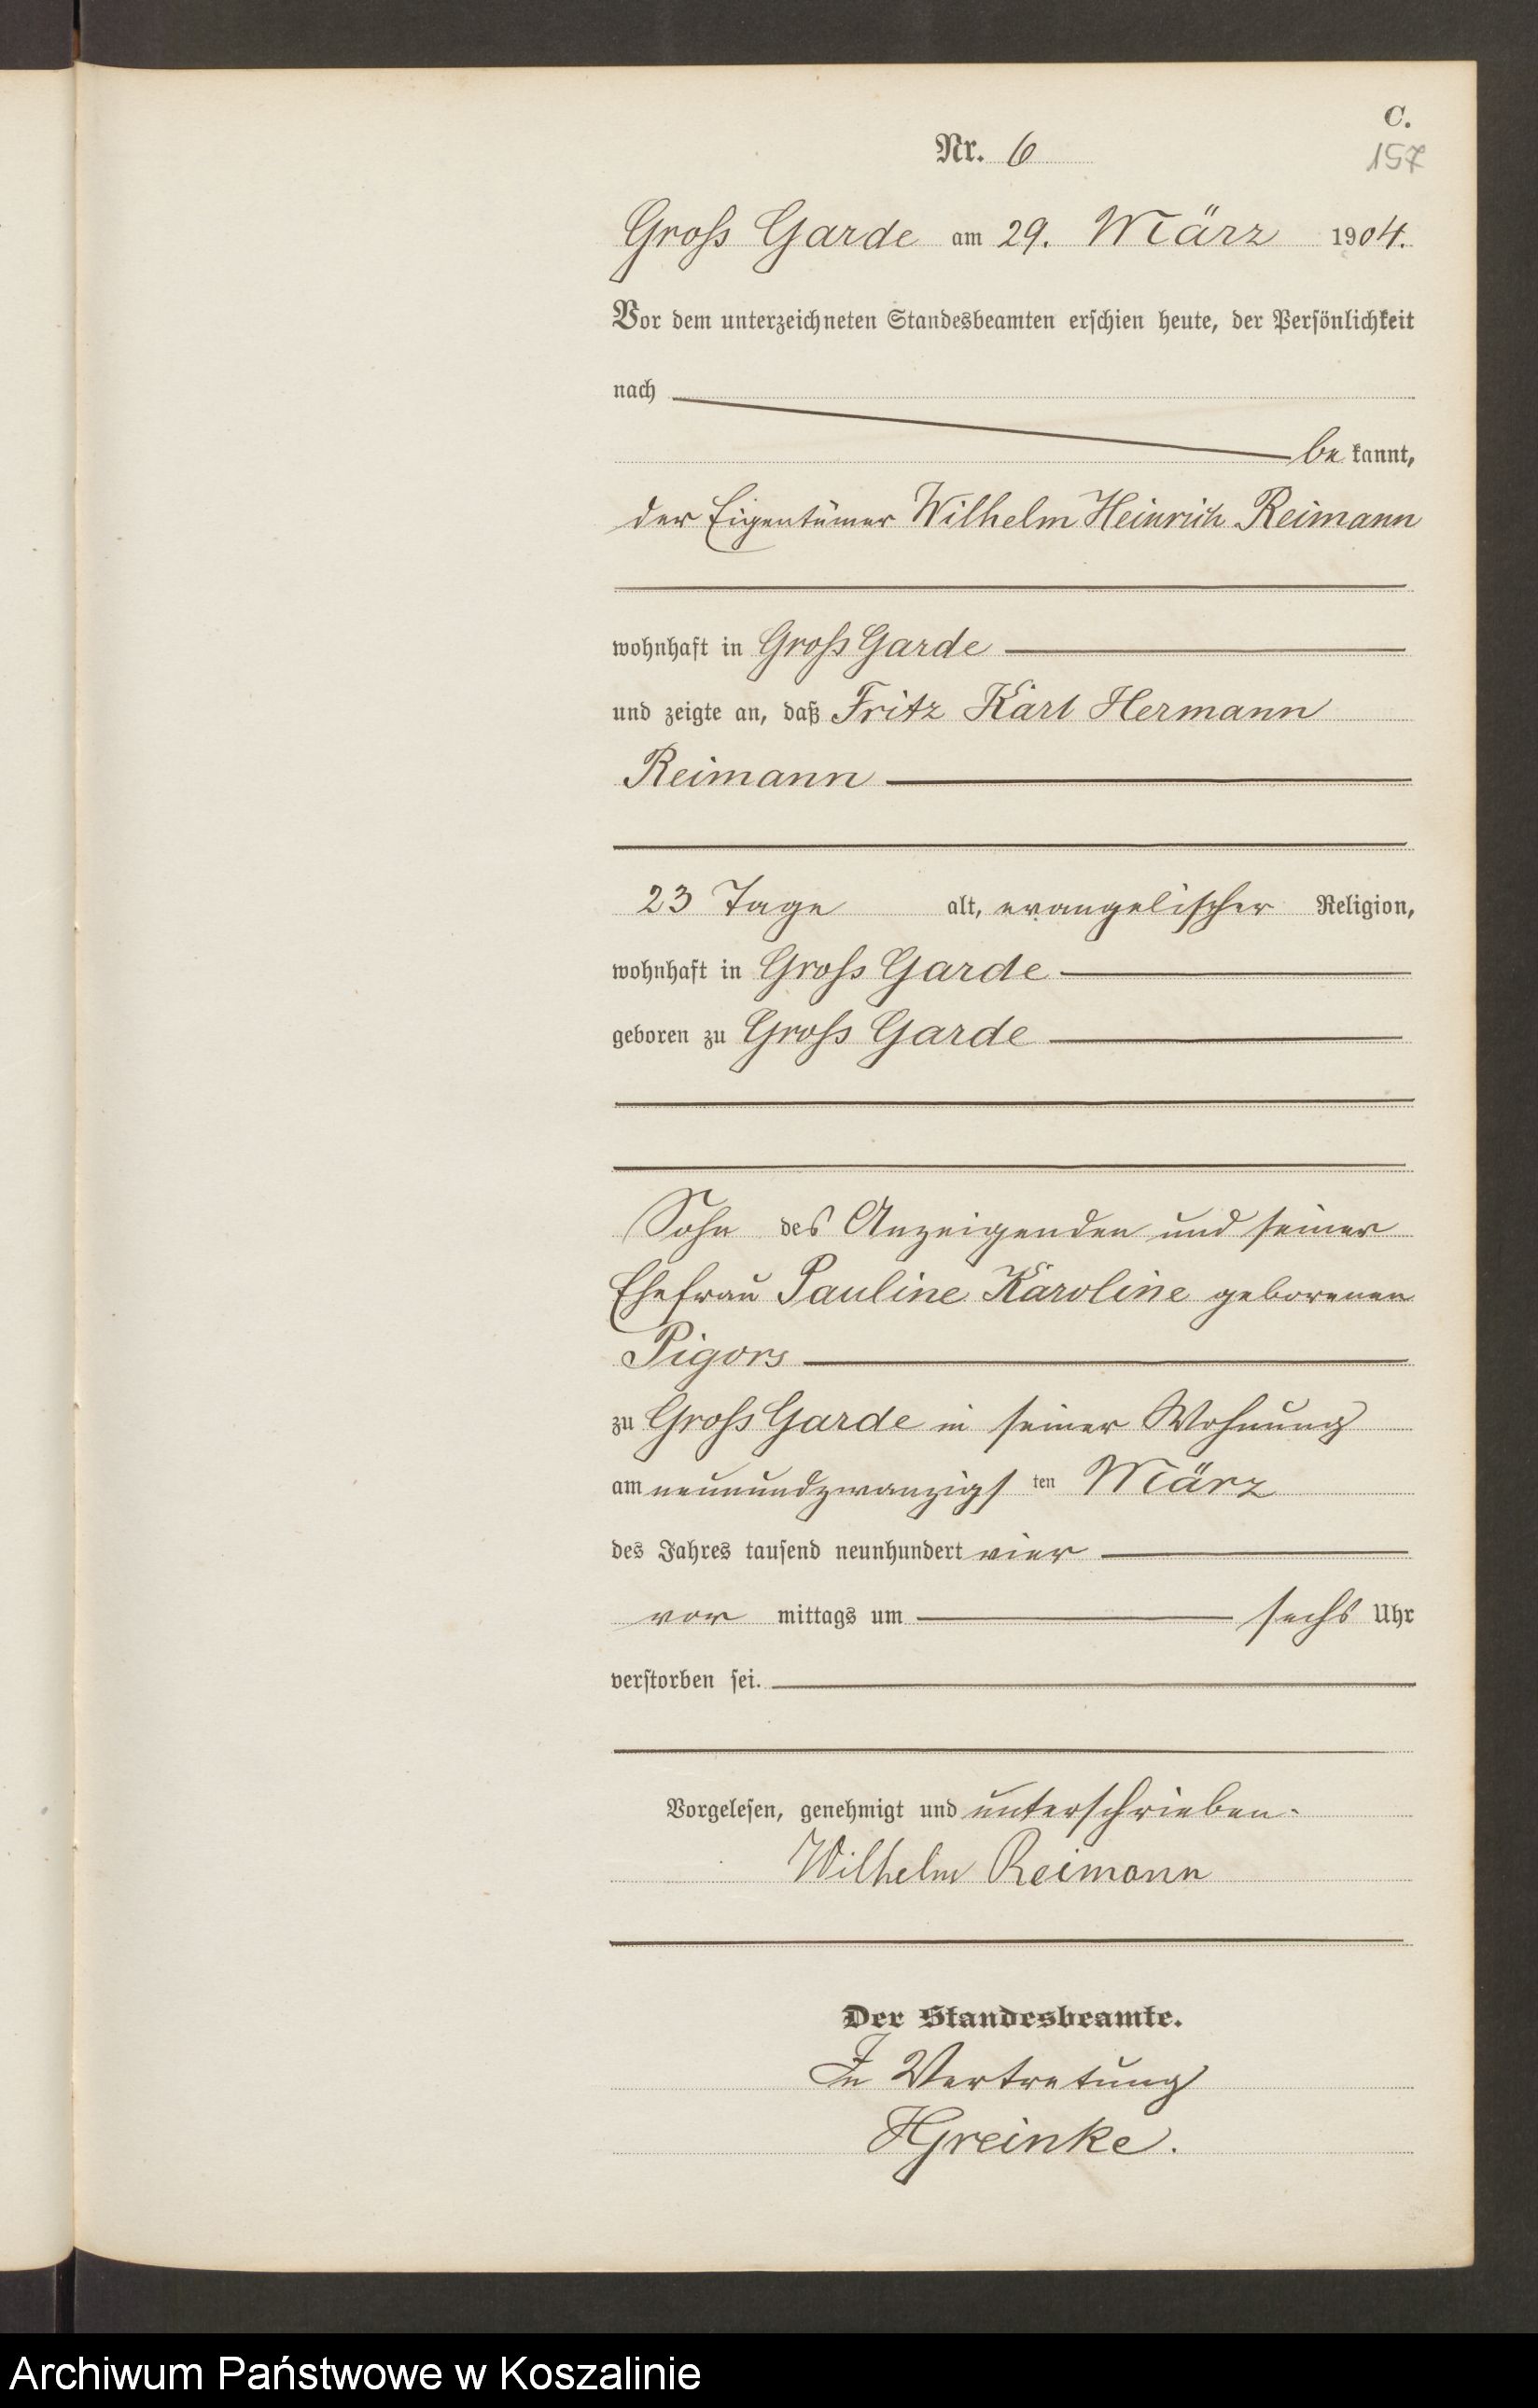 C.
Nr. 6
157
Groß Garde am 29. März 1904.
Vor dem unterzeichneten Standesbeamten erschien heute, der Persönlichkeit
nach
be kannt,
der Eigentümer Wilhelm Heinrich Reimann
wohnhaft in Groß Garde
und zeigte an, daß Fritz Karl Hermann
Reimann
23 Tage alt, evangelischer Religion,
wohnhaft in Groß Garde
geboren zu Groß Garde
Sohn des Anzeigenden und seiner
Ehefrau Pauline Karoline geborenen
Pigors
zu Groß Garde in seiner Wohnung
am neunundzwanzigs ten März
des Jahres tausend neunhundert vier
vor mittags um sechs Uhr
verstorben sei.
Vorgelesen, genehmigt und unterschrieben.
Wilhelm Reimann
Der Standesbeamte.
In Vertretung
HGreinke.
Archiwum Państwowe w Koszalinie